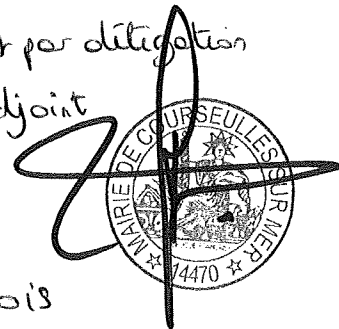 par délégation
djoint
MAIRIE DE COURSEULLES SUR MER
14470
ois